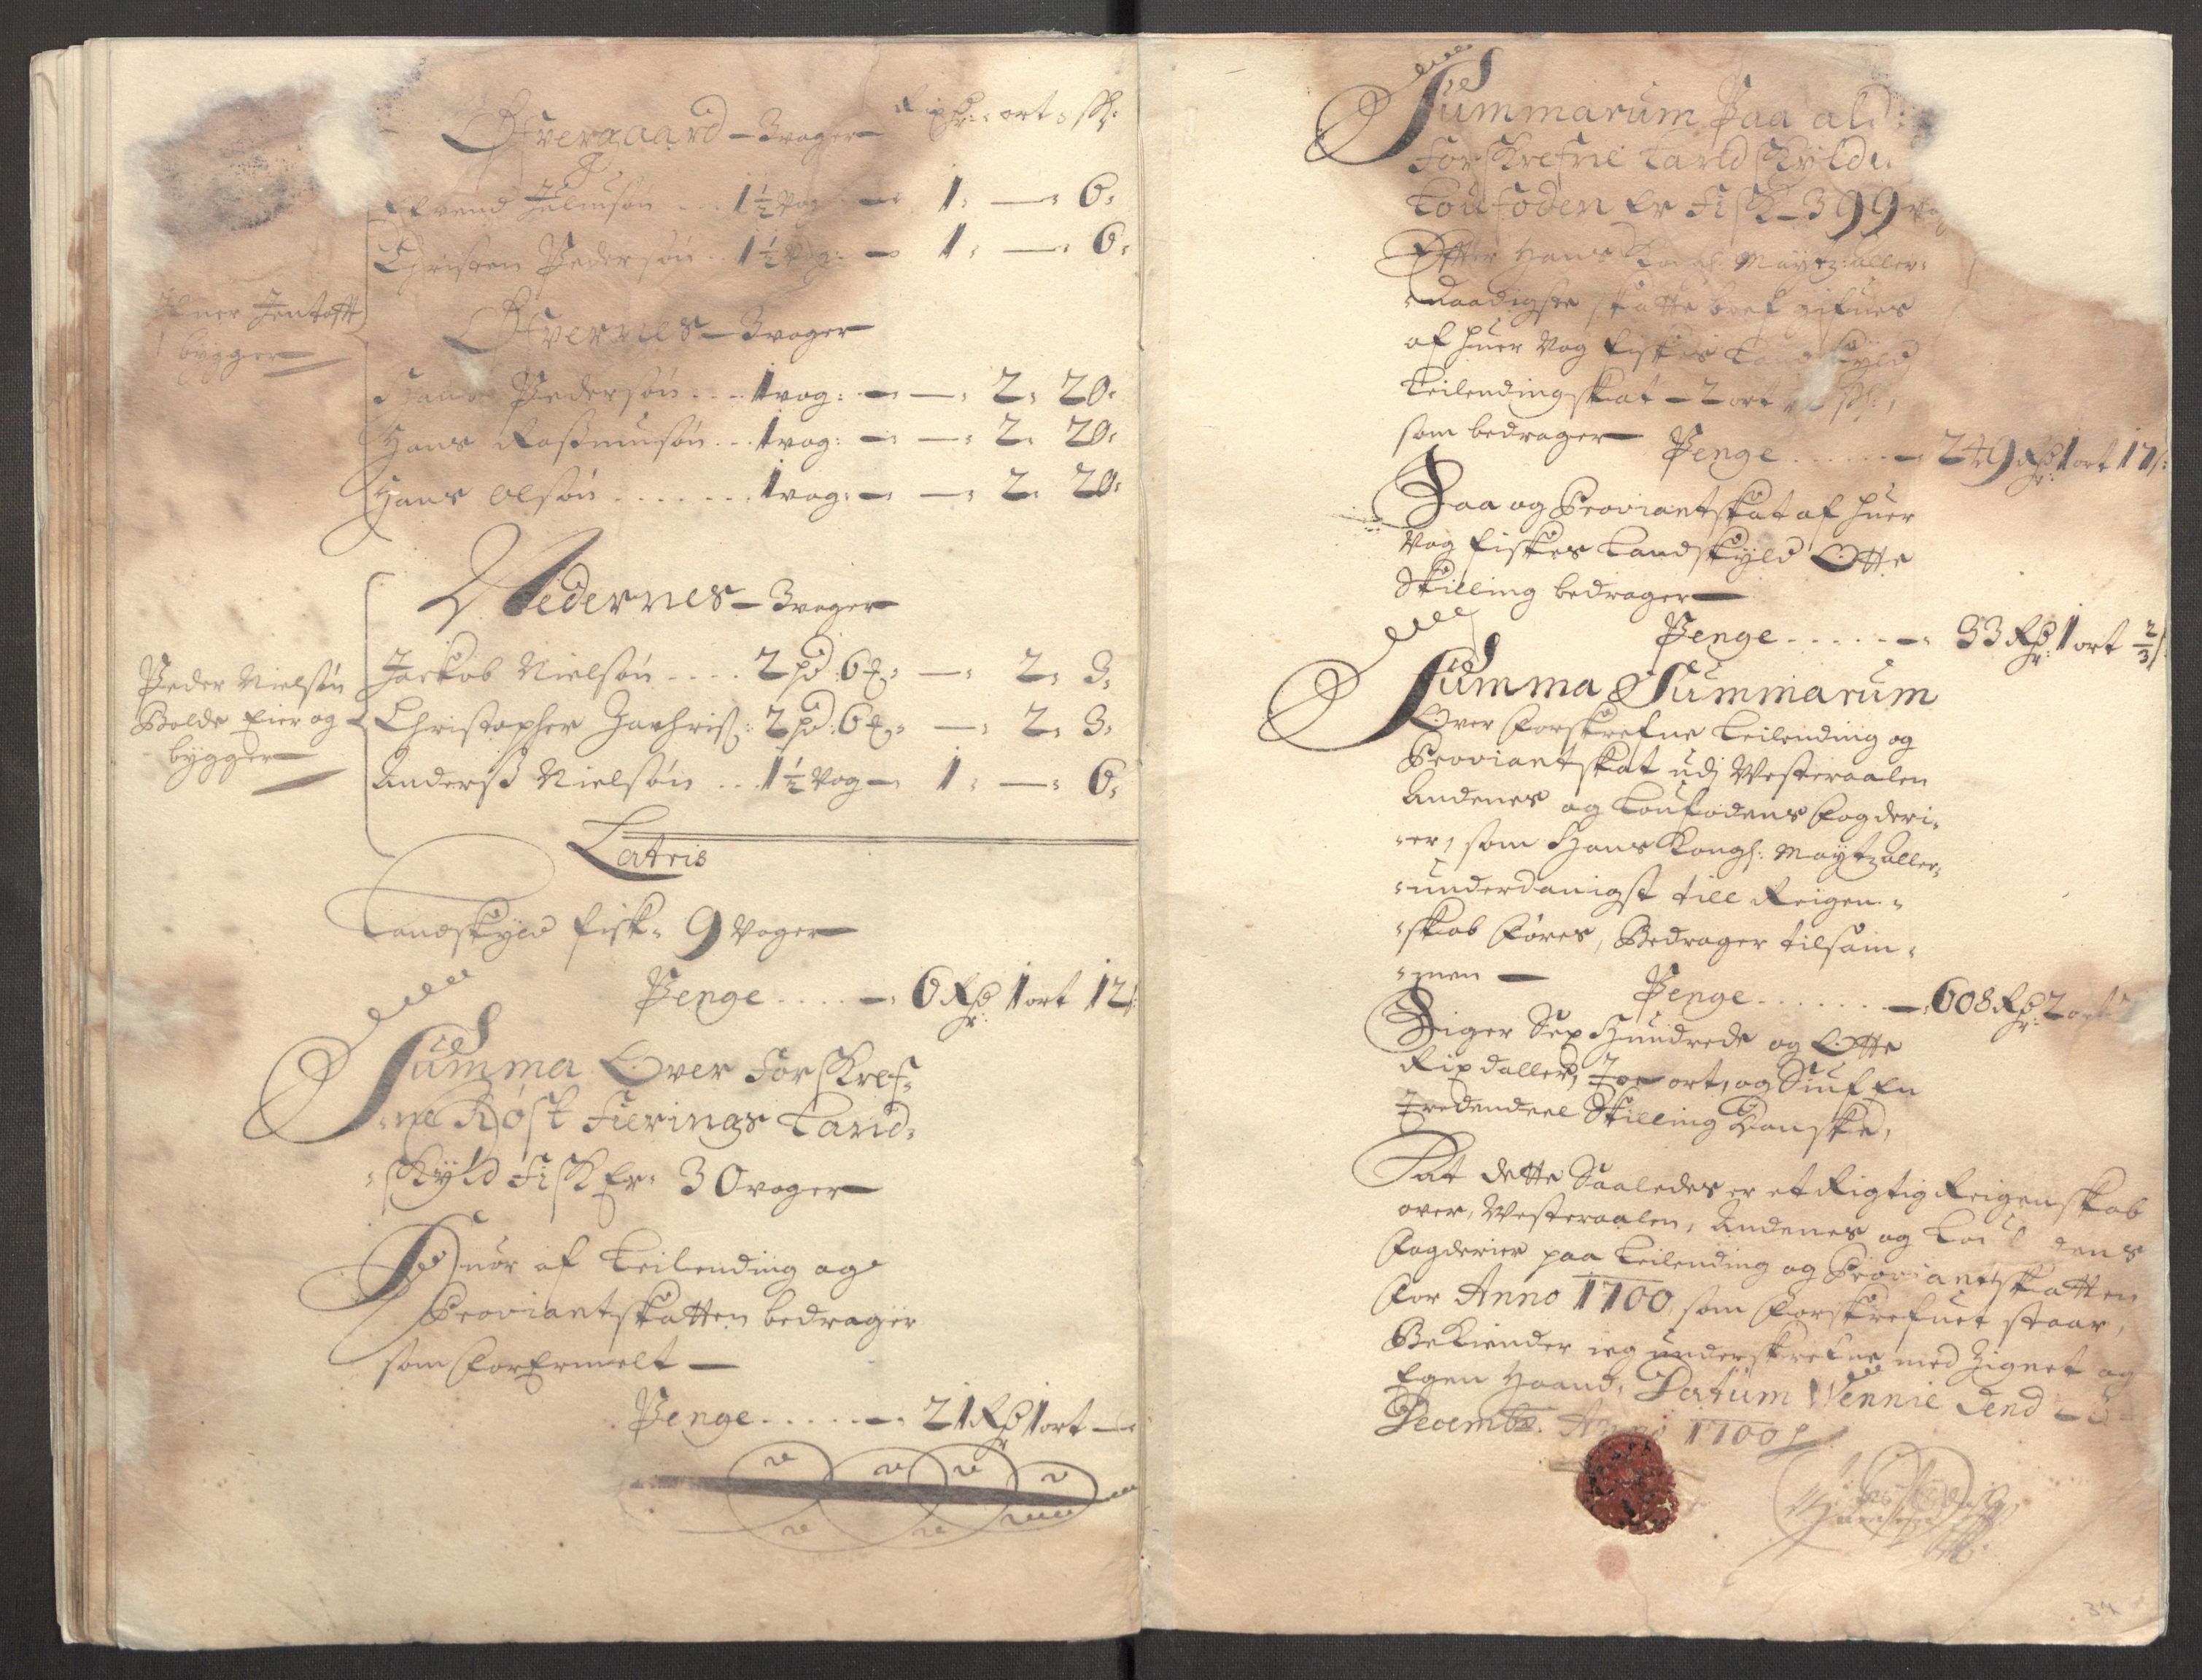 Rixdr: ort: sk:
Øfvergaard – 3 vager
Efvend Julinsøn ... 1½ vog – 1: — 6:
Christen Pedersøn .. 1½ vog: – 1: — 6:
Jentofft
bygger
Øfvernes – 3 vager
Hans Pedersøn ... 1 vog: – — 2: 20:
Hans Rasmusøn ... 1 vog: – — 2: 20:
Hans Olsøn ....... 1 vog: – — 2: 20:
Nedernes – 3 vager
Peder Nielsøn
Bolde Eier og
bygger
Jackob Nielsøn .... 2 pd: 6 — 2: 3:
Christopher Zachris: 2 pd: 6 — 2: 3:
Anderss Nielsøn ... 1½ vog – 1: — 6:
Lateris
Landskyld fisk: 9 Voger
Penge ..... 6 Rdr: 1 ort 12
Summa Over Forskref:
:ne Røst Fierings Land:
:skyld Fisk Er: 30 voger
Huor af Leilending og
Proviantskatten bedrager
som forermelt —
Penge ...... 21 Rdr 1 ort —
Summarum Paa ald:
Forskrefne Landskyld
Loufoden Er Fisk – 399
Effter Hans Kongl: Maytz: aller:
:naadigste skatte bref gifues
af huer Vog fiskes Landskyld
Leilendingskat – 2 ort
som bedrager
Penge ..... 249 Rdr: 1 ort 17
Saa og Proviantskat af huer
Vog fiskes Landskyld Otte
Skilling bedrager
Penge ..... 33 Rdr: 1 ort ⅔
Summa Summarum
Over forskrefne Leilending og
Proviantskat udj Westeraalen
Andenes og Loufodens fogderi:
:er, som Hans Kongl: Maytz aller:
:underdanigst till Reigen:
:skab føres, Bedrager tilsam:
:men — Penge ....... 608 Rdr: 2 ort
Siger Sex Hundrede og Otte
Rixdaller, Toe ort, og Siuf En
Tredendeel Skilling Danske,
At dette Saaledes er et Rigtig Reigenskab
over, Westeraalen, Andenes og Loufodens
fogderier paa Leilending og Proviantskatten
for Anno 1700, som forskrefuet staar,
Bekiender ieg underskrefne med Zignet og
Egen Haand, Datum Wennie Dend
Decembr: Anno 1700
34